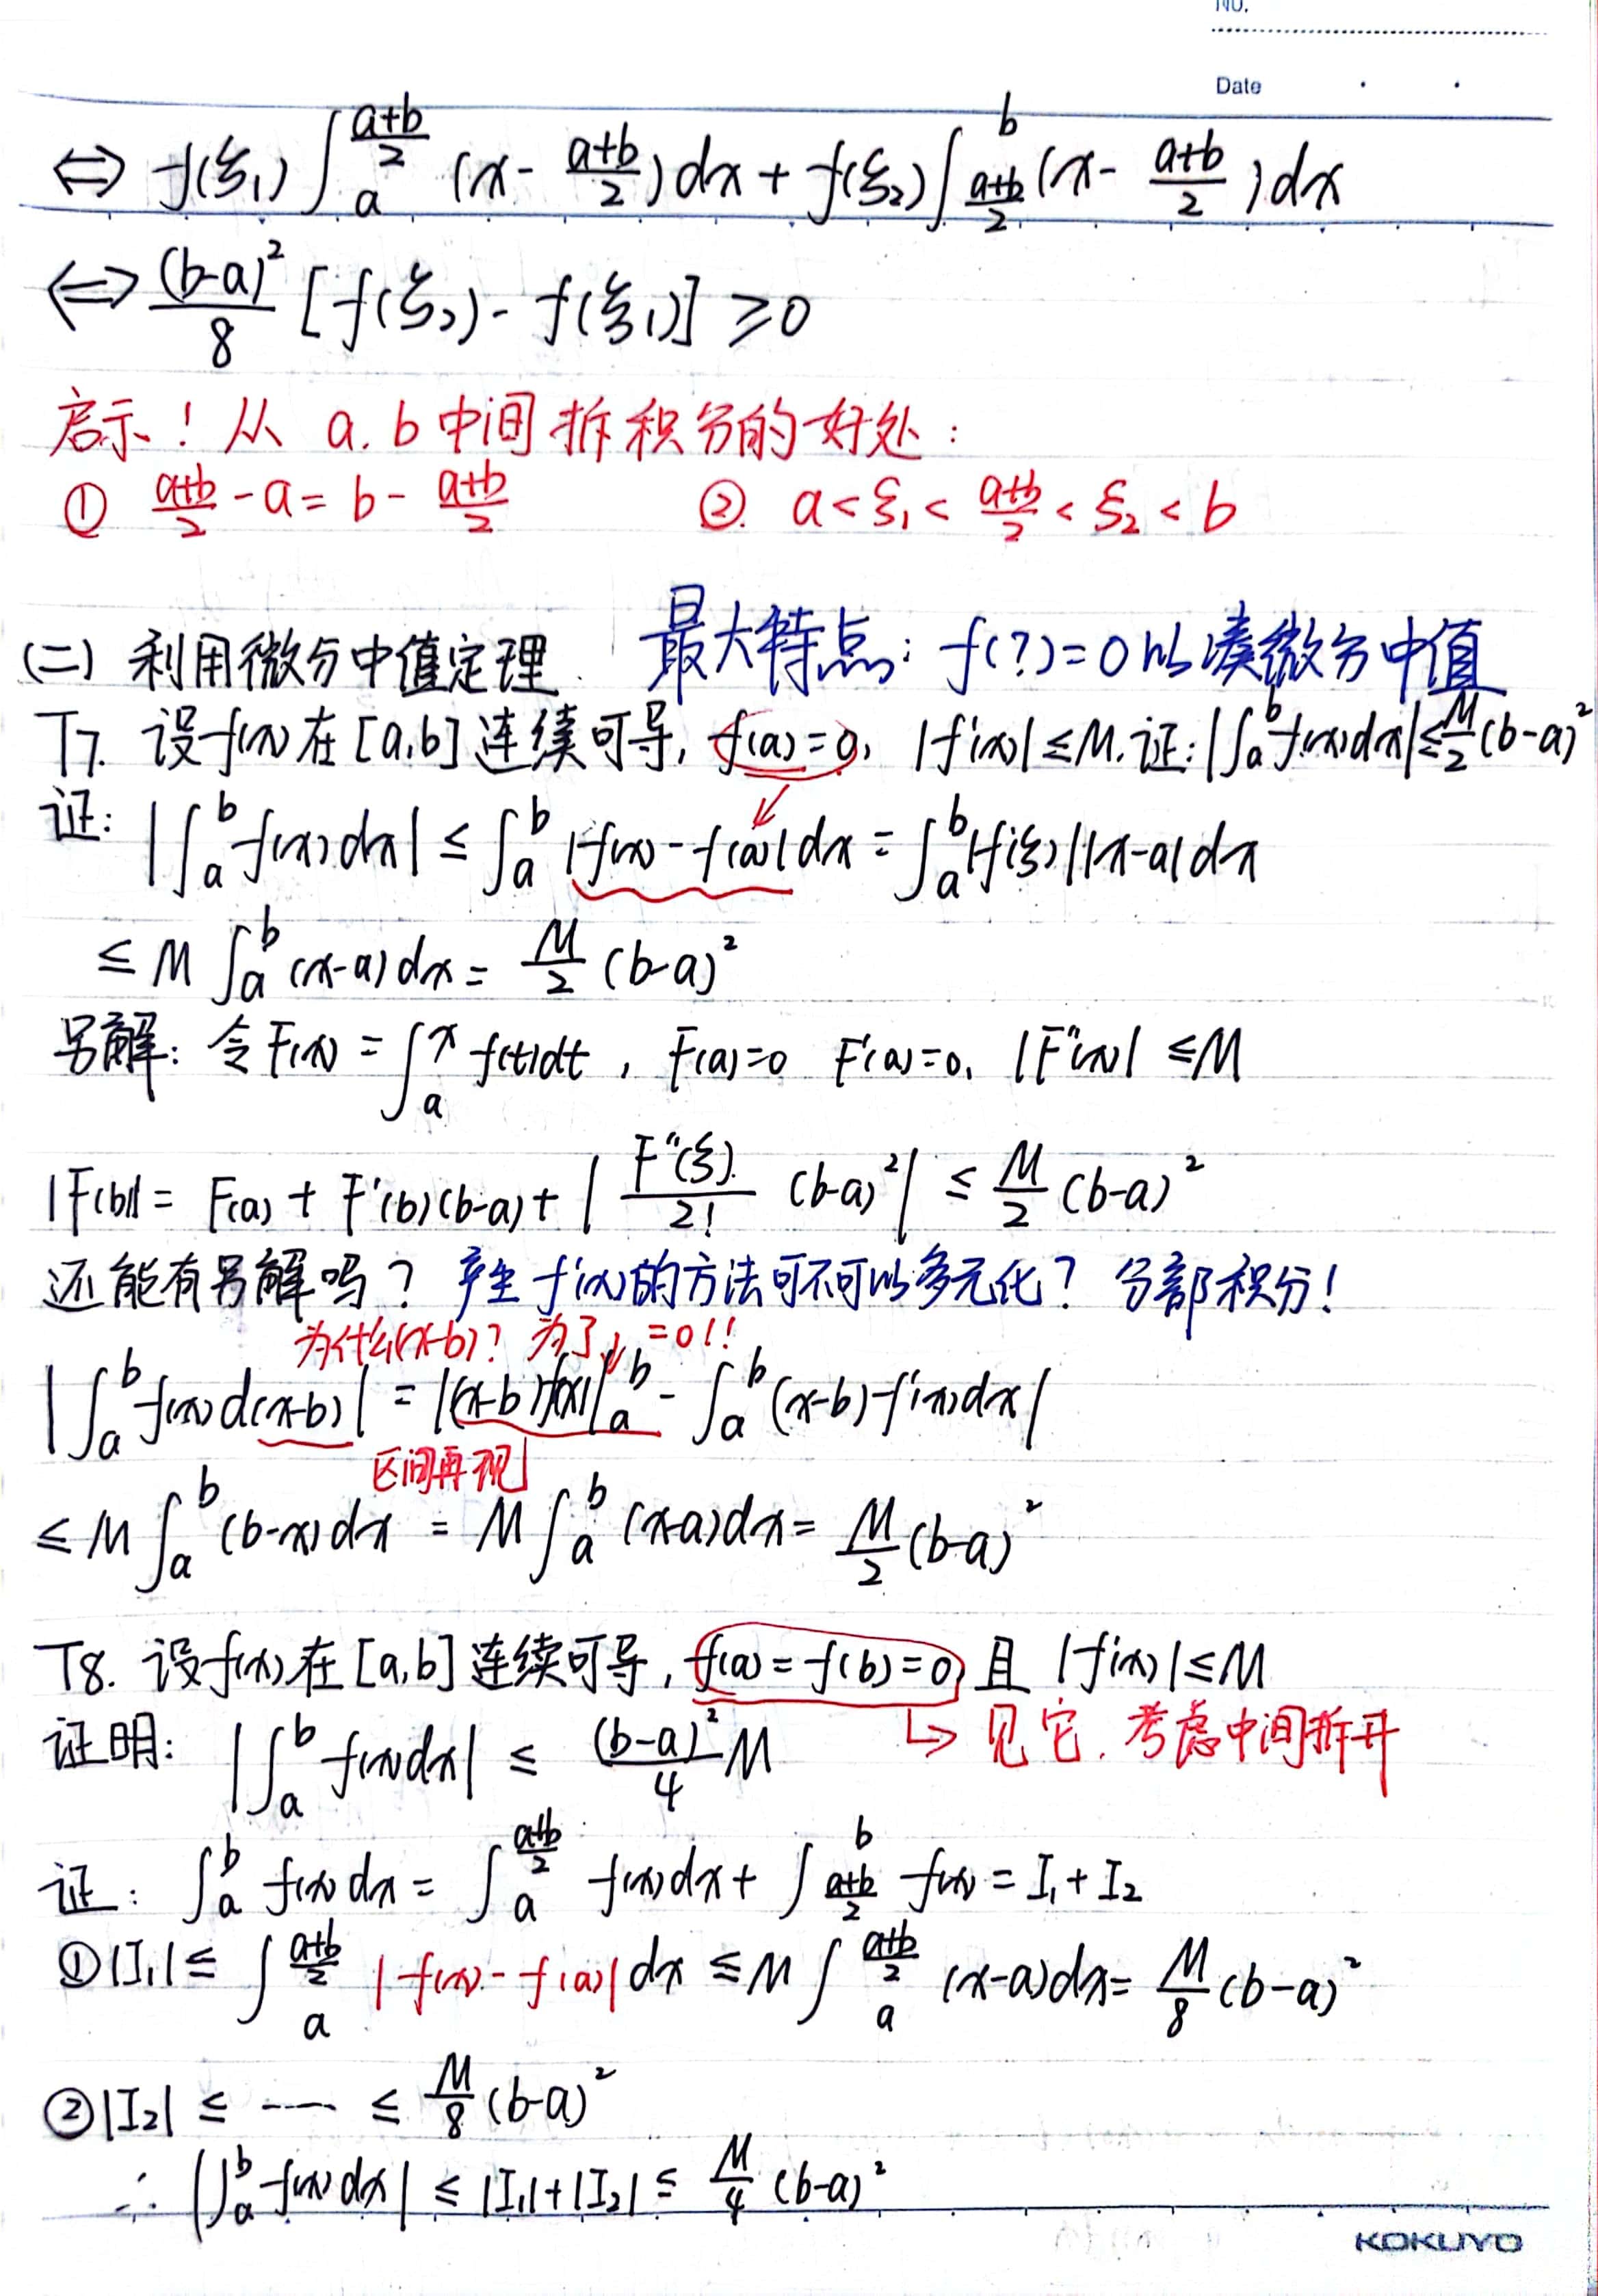 NO.
Date
⇔ f(ξ₁)∫_a^{\frac{a+b}{2}} (x-\frac{a+b}{2})dx + f(ξ₂)∫_{\frac{a+b}{2}}^b (x-\frac{a+b}{2})dx
⇔ \frac{(b-a)^2}{8} [f(ξ₂)-f(ξ₁)] ≥0
启示！从 a.b中间拆积分的好处：
① \frac{a+b}{2}-a=b-\frac{a+b}{2} ② a<ξ₁<\frac{a+b}{2}<ξ₂<b
(二) 利用微分中值定理. 最大特点：f(?)=0以凑微分中值
T7. 设f(x)在[a,b]连续可导, f(a)=0, |f'(x)|≤M.证:|∫_a^b f(x)dx|≤\frac{M}{2}(b-a)^2
证: |∫_a^b f(x)dx| ≤ ∫_a^b |f(x)-f(a)|dx = ∫_a^b |f'(ξ)||x-a|dx
≤ M ∫_a^b (x-a)dx = \frac{M}{2}(b-a)^2
另解: 令F(x)=∫_a^x f(t)dt, F(a)=0 F'(a)=0, |F''(x)| ≤M
|F(b)|= F(a) + F'(b)(b-a)+ |\frac{F''(ξ)}{2!} (b-a)^2| ≤ \frac{M}{2}(b-a)^2
还能有另解吗？产生f'(x)的方法可不可以多元化？分部积分！
为什么(x-b)? 为了↓=0!!
|∫_a^b f(x)d(x-b)| = |(x-b)f(x)|_a^b - ∫_a^b (x-b)f'(x)dx|
区间再现
≤M∫_a^b (b-x)dx = M∫_a^b (x-a)dx= \frac{M}{2}(b-a)^2
T8. 设f(x)在[a,b]连续可导, f(a)=f(b)=0, 且 |f'(x)|≤M
证明: |∫_a^b f(x)dx| ≤ \frac{(b-a)^2}{4}M ↳ 见它,考虑中间拆开
证: ∫_a^b f(x)dx = ∫_a^{\frac{a+b}{2}} f(x)dx + ∫_{\frac{a+b}{2}}^b f(x) = I₁+I₂
①|I₁|≤ ∫_a^{\frac{a+b}{2}} |f(x)-f(a)|dx ≤M∫_a^{\frac{a+b}{2}} (x-a)dx= \frac{M}{8}(b-a)^2
②|I₂| ≤ ⋯ ≤ \frac{M}{8}(b-a)^2
∴ |∫_a^b f(x)dx| ≤ |I₁|+|I₂| ≤ \frac{M}{4}(b-a)^2
KOKUYO